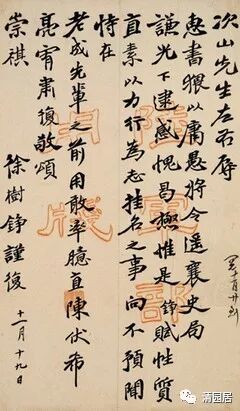 次山先生左右辱
惠書猥以庸愚將令遥襄史局
謙光下逮感愧曷極惟是錚賦性質
直素以力行為志挂名之事向不預聞
恃在
老成先輩之前用敢率臆直陳伏希
亮宥肅復敬頌
崇祺
徐樹錚謹復
十一月十九日
陸軍部
用牋
清园居